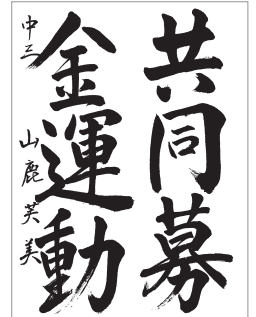 共同募
金運動
中三 山鹿芙美